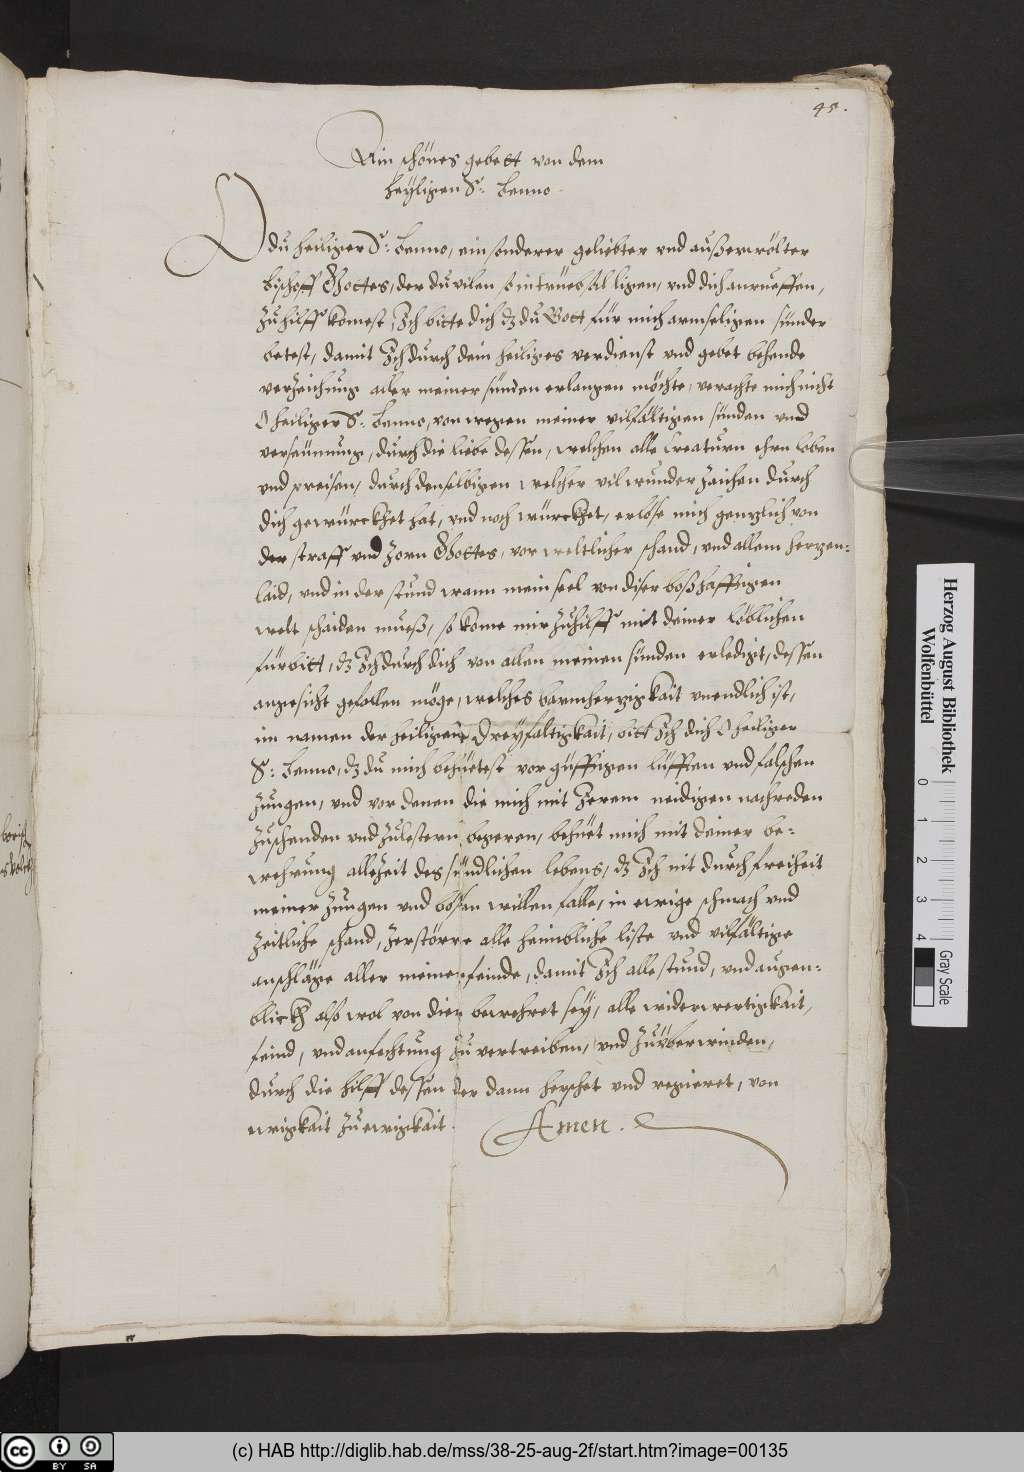 45.
Ain schönes gebett von dem
heÿligen S: Benno.
O du heiliger S: Benno, ein sonderer geliebter vnd außerwölter
bischoff Gottes, der du vilen so in trüebsal ligen, vnd dich anrueffen,
zu hilff komest, Ich bitte dich dz du Gott für mich armseligen sünder
betest, damit Ich durch dein heiliges verdienst vnd gebet behende
verzeichung aller meiner sünden erlangen möchte, verachte mich nicht
O heiliger S: Benno, von wegen meiner vilfältigen sünden vnd
versäumung, durch die liebe dessen, welchen alle Creaturn ehrn loben
vnd preisen, durch denselbigen welcher vil wunder zaichen durch
dich gewürckhet hat, vnd noch würckhet, erlöse mich genzlich von
der straff vnd zorn Gottes, vor weltlicher schand, vnd allem herzen-
laid, vnd in der stund wann mein seel von diser boßhafftigen
welt schaiden mueß, so kome mir zuhilff mit deiner löblichen
fürbitt, dz Ich durch dich von allen meinen sünden erledigt, dessen
angesicht gefallen möge, welches barmherzigkait vnendlich ist,
im namen der heiligen Dreyfaltigkait, bitt Ich dich O heiliger
S: Benno, dz du mich behüetest vor güfftigen lüfften vnd falschen
zungen, vnd vor denen die mich mit Jerem neidigen nachreden
zuschenden vnd zulestern begeren, behüet mich mit deiner be-
wehrung allezeit des sündlichen lebens, dz Ich nit durch freiheit
meiner zungen vnd bösen willen falle, in ewige schmach vnd
zeitliche schand, zerstörre alle heimbliche liste vnd vilfältige
anschläge aller meiner feinde, damit Ich alle stund, vnd augen-
blickh also wol von dier bewehret sey, alle widerwertigkait,
feind, vnd anfechtung zu vertreiben, vnd zuüberwinden,
durch die hilff dessen der dann herschet vnd regieret, von
ewigkait zu ewigkait. Amen.
Herzog August Bibliothek
Wolfenbüttel
0 1 2 3 4
Gray Scale
CC BY SA
(c) HAB http://diglib.hab.de/mss/38-25-aug-2f/start.htm?image=00135